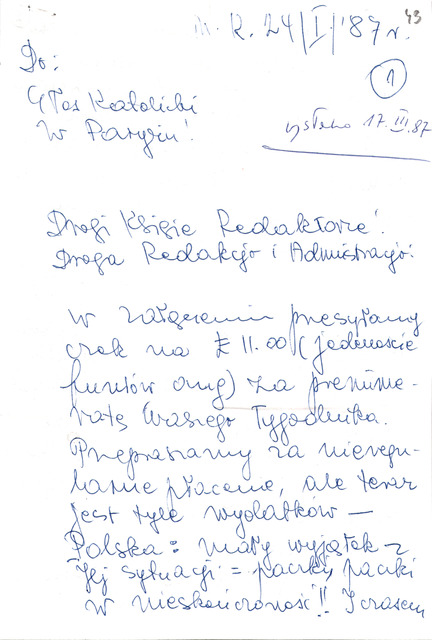 43
M. R. 24/I/'87 r.
Do:
Głos Katolicki
w Paryżu!
1
wysłano 17.III.87
Drogi Księże Redaktorze!
Droga Redakcjo i Administracjo!
W załączeniu przesyłamy
czek na £ 11.00 (jedenaście
funtów ang) za prenume-
ratę Waszego Tygodnika.
Przepraszamy za nieregu-
larne płacenie, ale teraz
jest tyle wydatków –
Polska: mały wyjątek z
Jej sytuacji = paczki, paczki
w nieskończoność!! I czasem